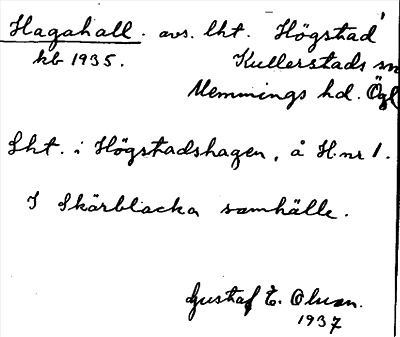 Hagahall. avs. lht. Högstad 1
kb 1935. Kullerstads sn
Memmings hd. Ögl
Lht. i Högstadshagen, å H:nr 1.
I Skärblacka samhälle.
Gustaf E. Olsson.
1937